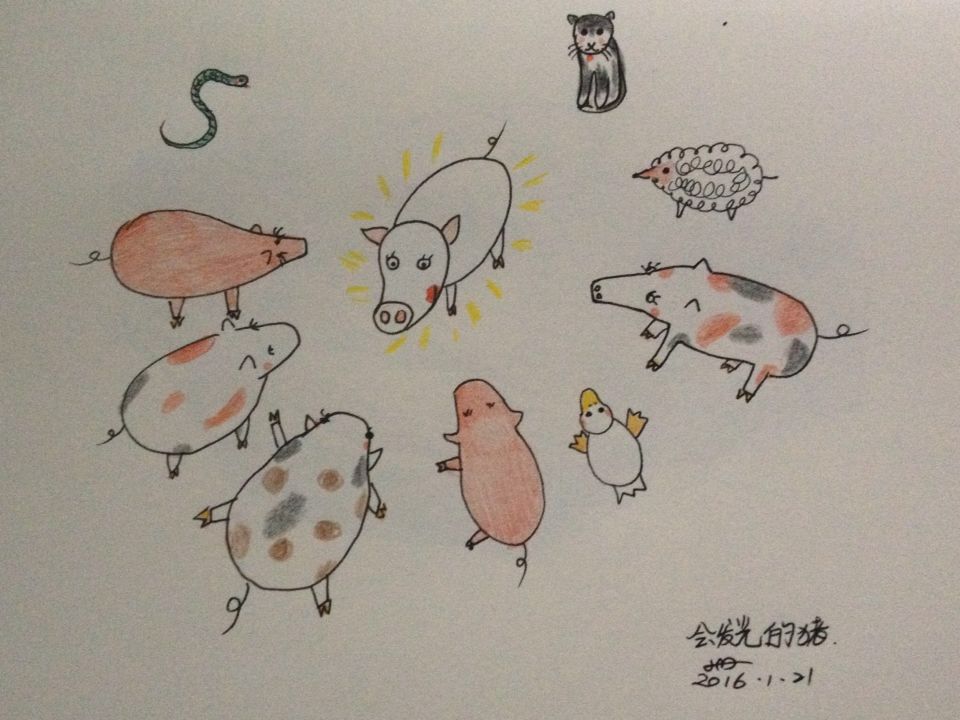 会发光的猪.
2016.1.21